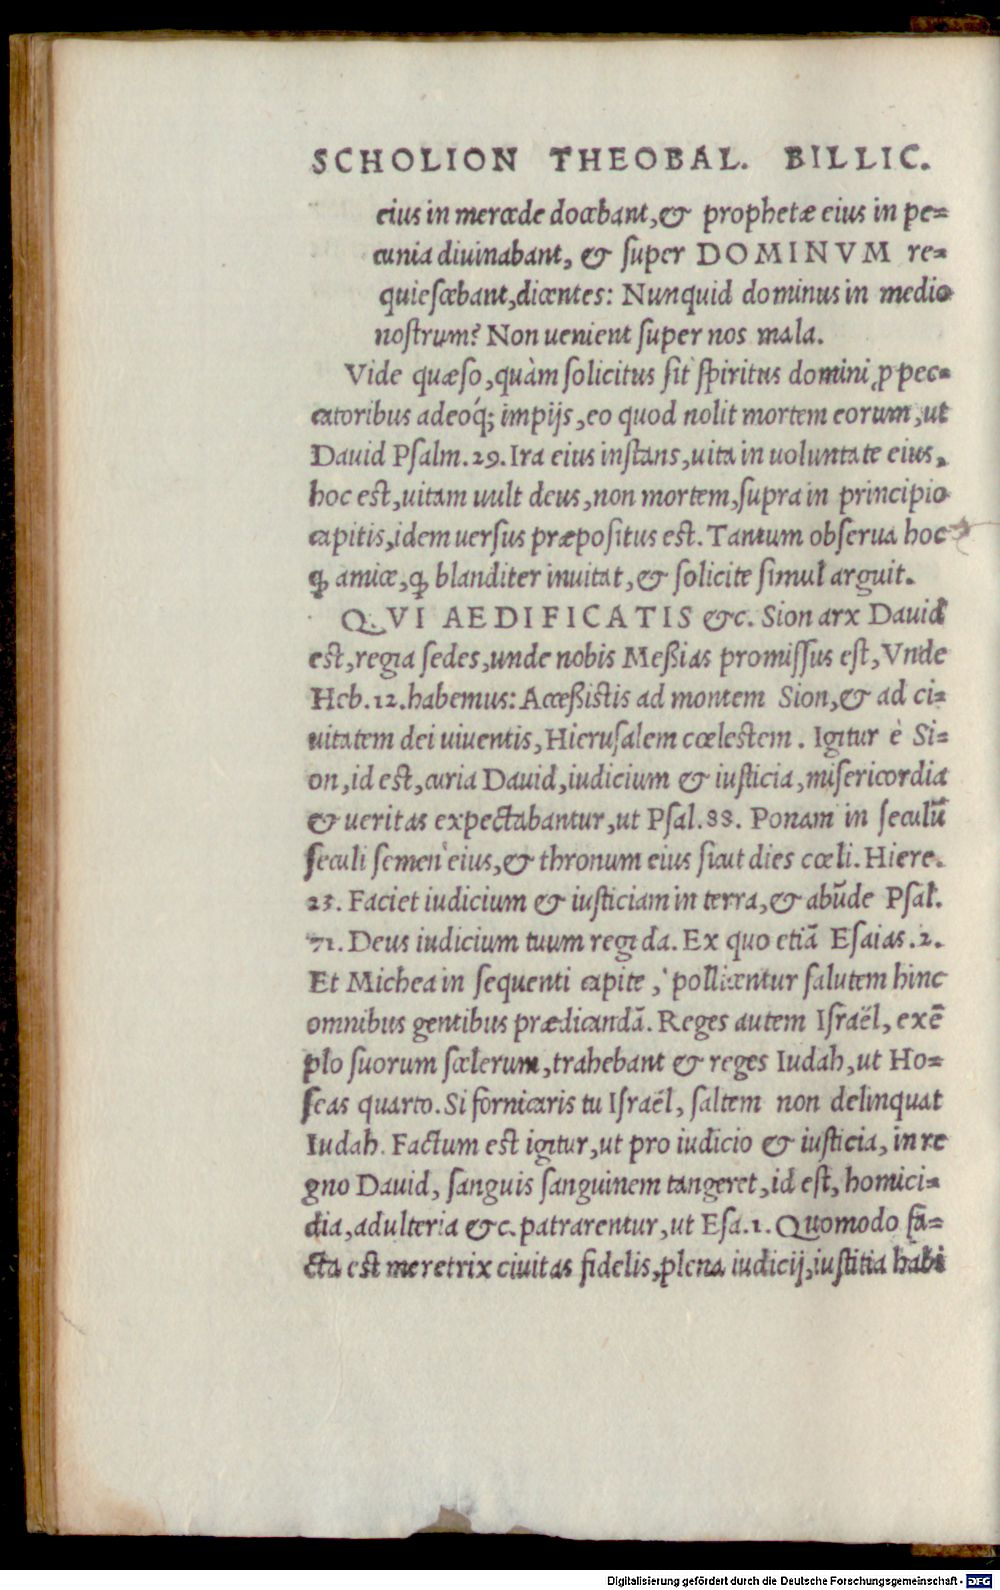 SCHOLION THEOBAL. BILLIC.
eius in mercede docebant,& prophetæ eius in pe=
cunia diuinabant, & ſuper DOMINVM re=
quieſcebant,dicentes: Nunquid dominus in medio
noſtrum? Non uenient ſuper nos mala.
Vide quæſo,quàm ſolicitus ſit ſpiritus domini ꝓ pec=
catoribus adeoq́; impijs,eo quod nolit mortem eorum,ut
Dauid Pſalm.29.Ira eius inſtans,uita in uoluntate eius,
hoc eſt,uitam uult deus,non mortem,ſupra in principio
capitis,idem uerſus præpoſitus eſt.Tantum obſerua hoc
ꝙ amice,ꝙ blanditer inuitat,& ſolicite ſimul arguit.
QVI AEDIFICATIS &c. Sion arx Dauid
eſt,regia ſedes,unde nobis Meßias promiſſus eſt,Vnde
Heb.12.habemus: Acceßiſtis ad montem Sion,& ad ci=
uitatem dei uiuentis,Hieruſalem cœleſtem. Igitur è Si=
on,id eſt,curia Dauid,iudicium & iuſticia,miſericordia
& ueritas expectabantur,ut Pſal.88. Ponam in ſeculū
ſeculi ſemen eius,& thronum eius ſicut dies cœli.Hiere.
23. Faciet iudicium & iuſticiam in terra,& abūde Pſal.
71. Deus iudicium tuum regi da. Ex quo etiā Eſaias.2.
Et Michea in ſequenti capite, pollicentur ſalutem hinc
omnibus gentibus prædicandā. Reges autem Iſraël, exē
plo ſuorum ſcelerum,trahebant & reges Iudah,ut Ho=
ſeas quarto.Si fornicaris tu Iſraël, ſaltem non delinquat
Iudah. Factum eſt igitur,ut pro iudicio & iuſticia, in re
gno Dauid, ſanguis ſanguinem tangeret,id eſt, homici=
dia,adulteria &c.patrarentur,ut Eſa.1.Quomodo fa=
cta eſt meretrix ciuitas fidelis,plena iudicij,iuſtitia habi
Digitalisierung gefördert durch die Deutsche Forschungsgemeinschaft - DFG